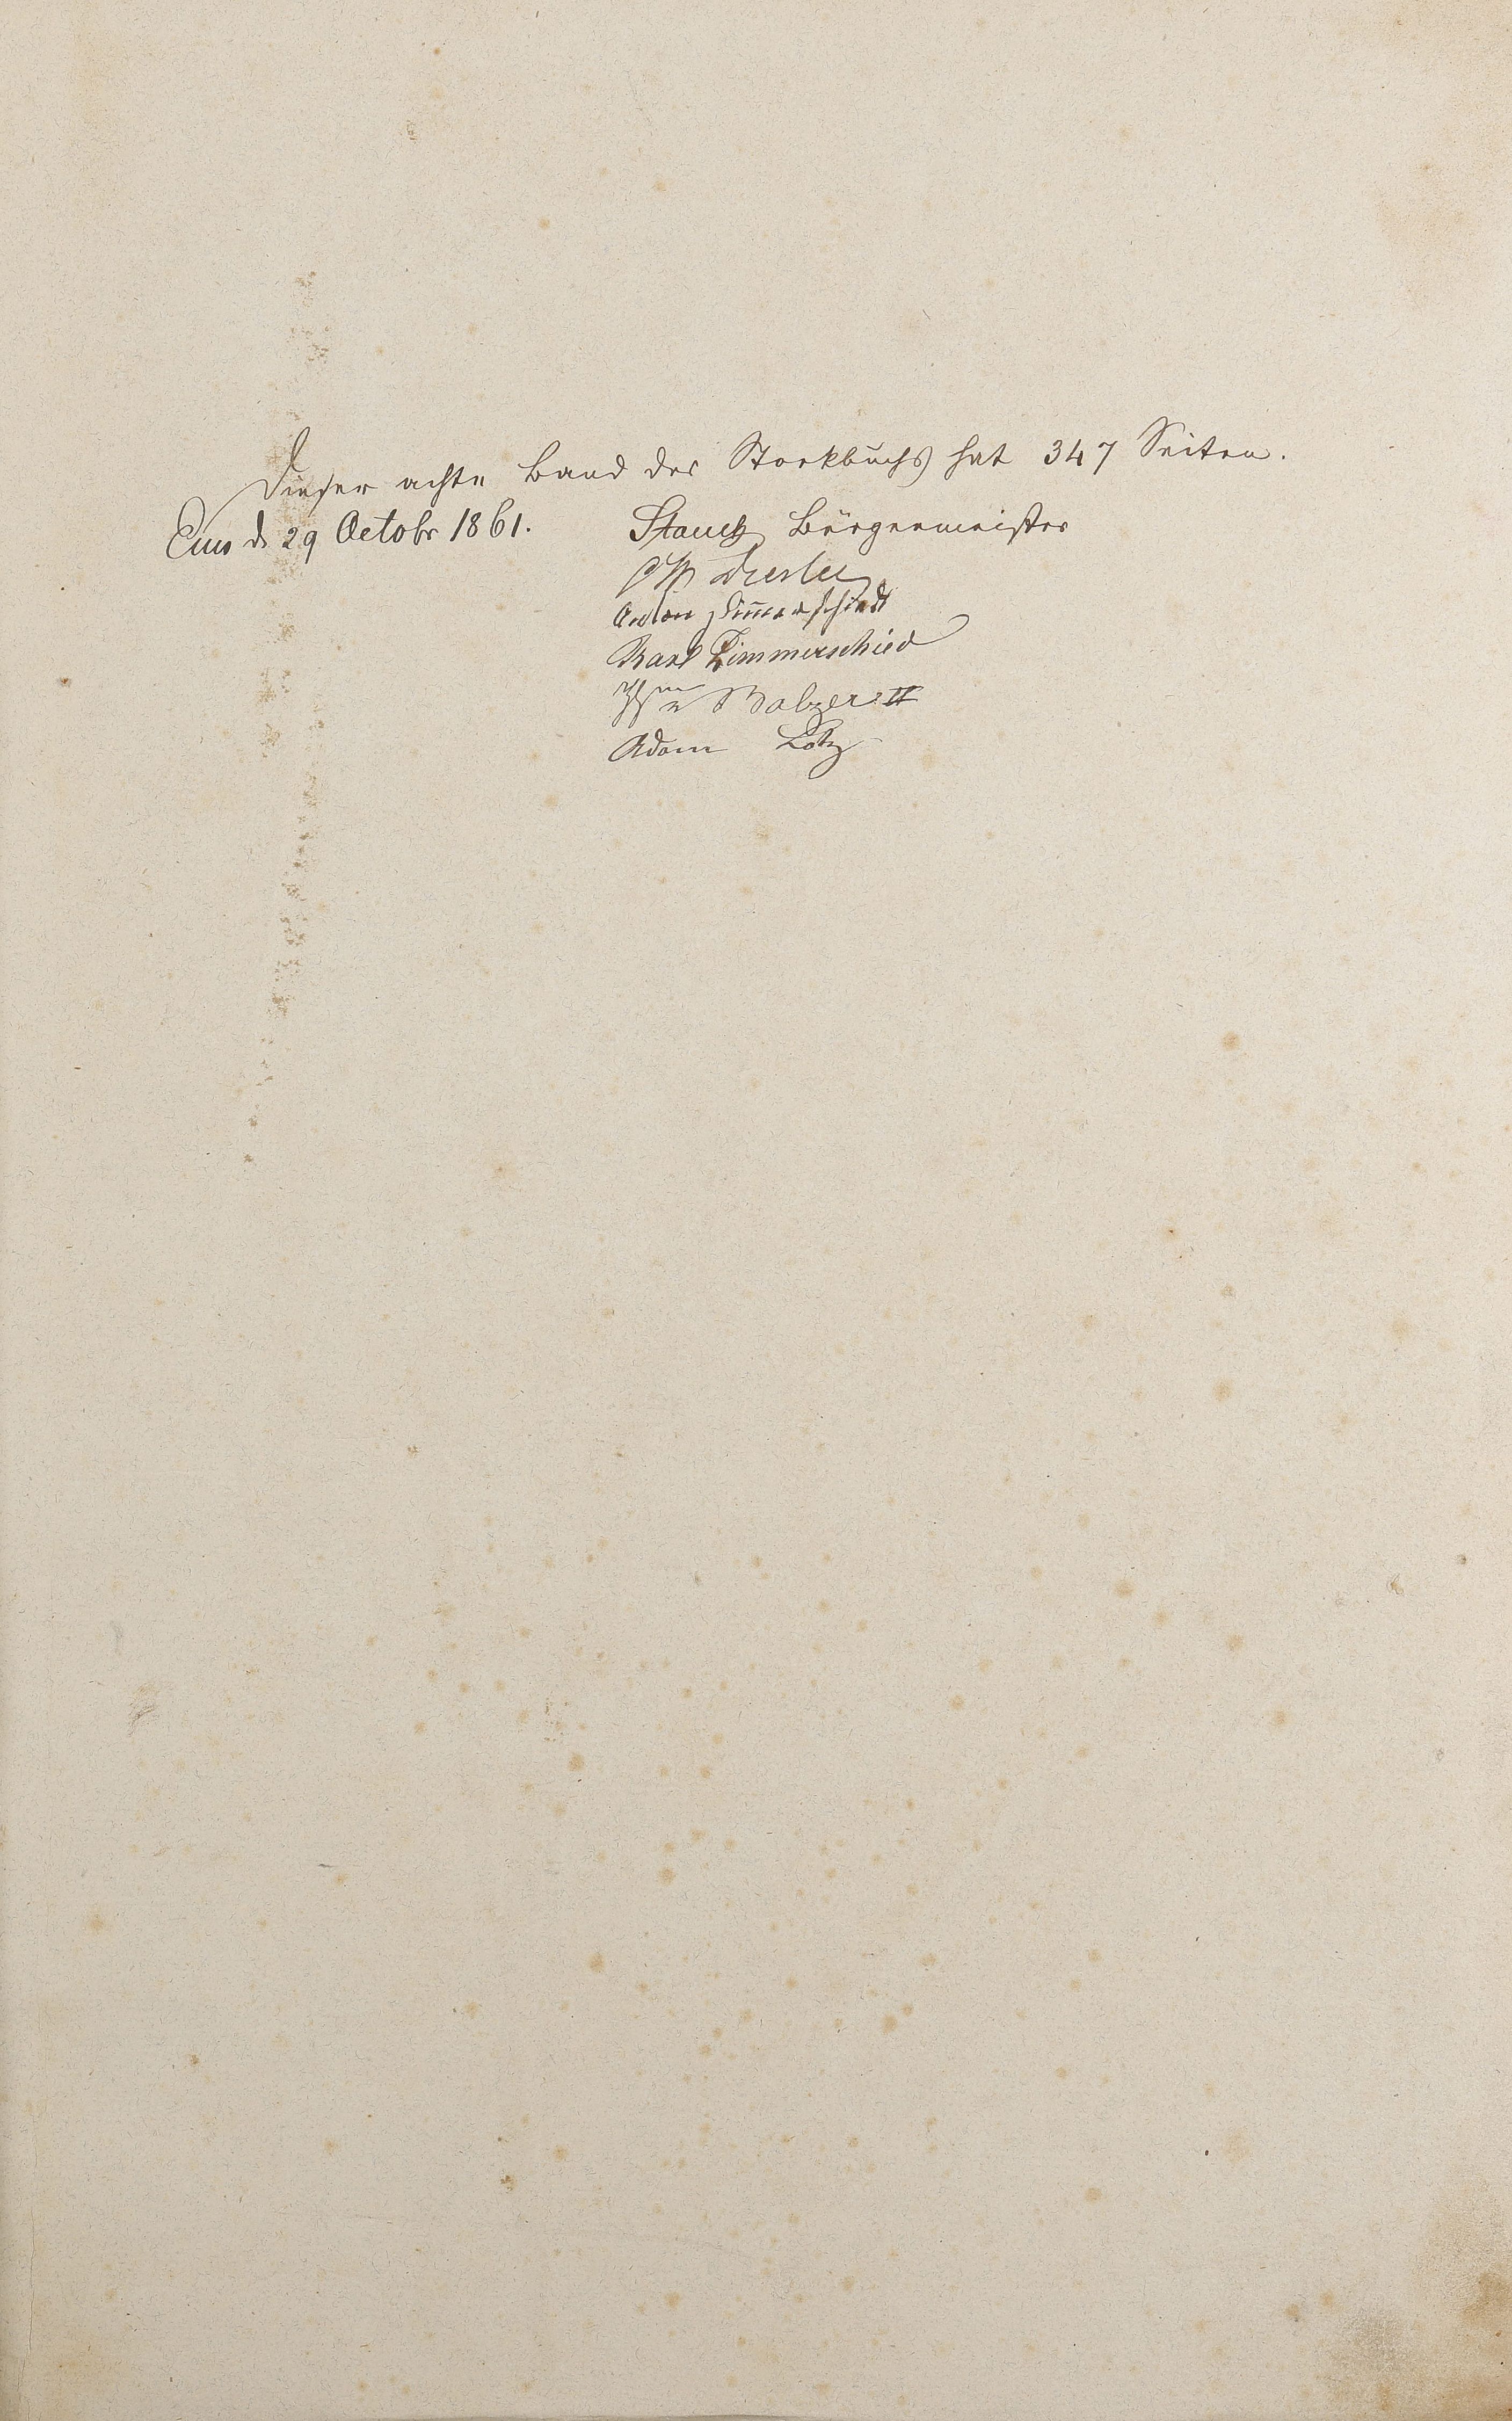 Dieser achte Band des Stockbuchs hat 347 Seiten.
Ems d. 29 Octobr 1861. Stauch Bürgermeister
Anton Zimmerschiedt
Karl Zimmerschied
Balzer II
Adam Lotz